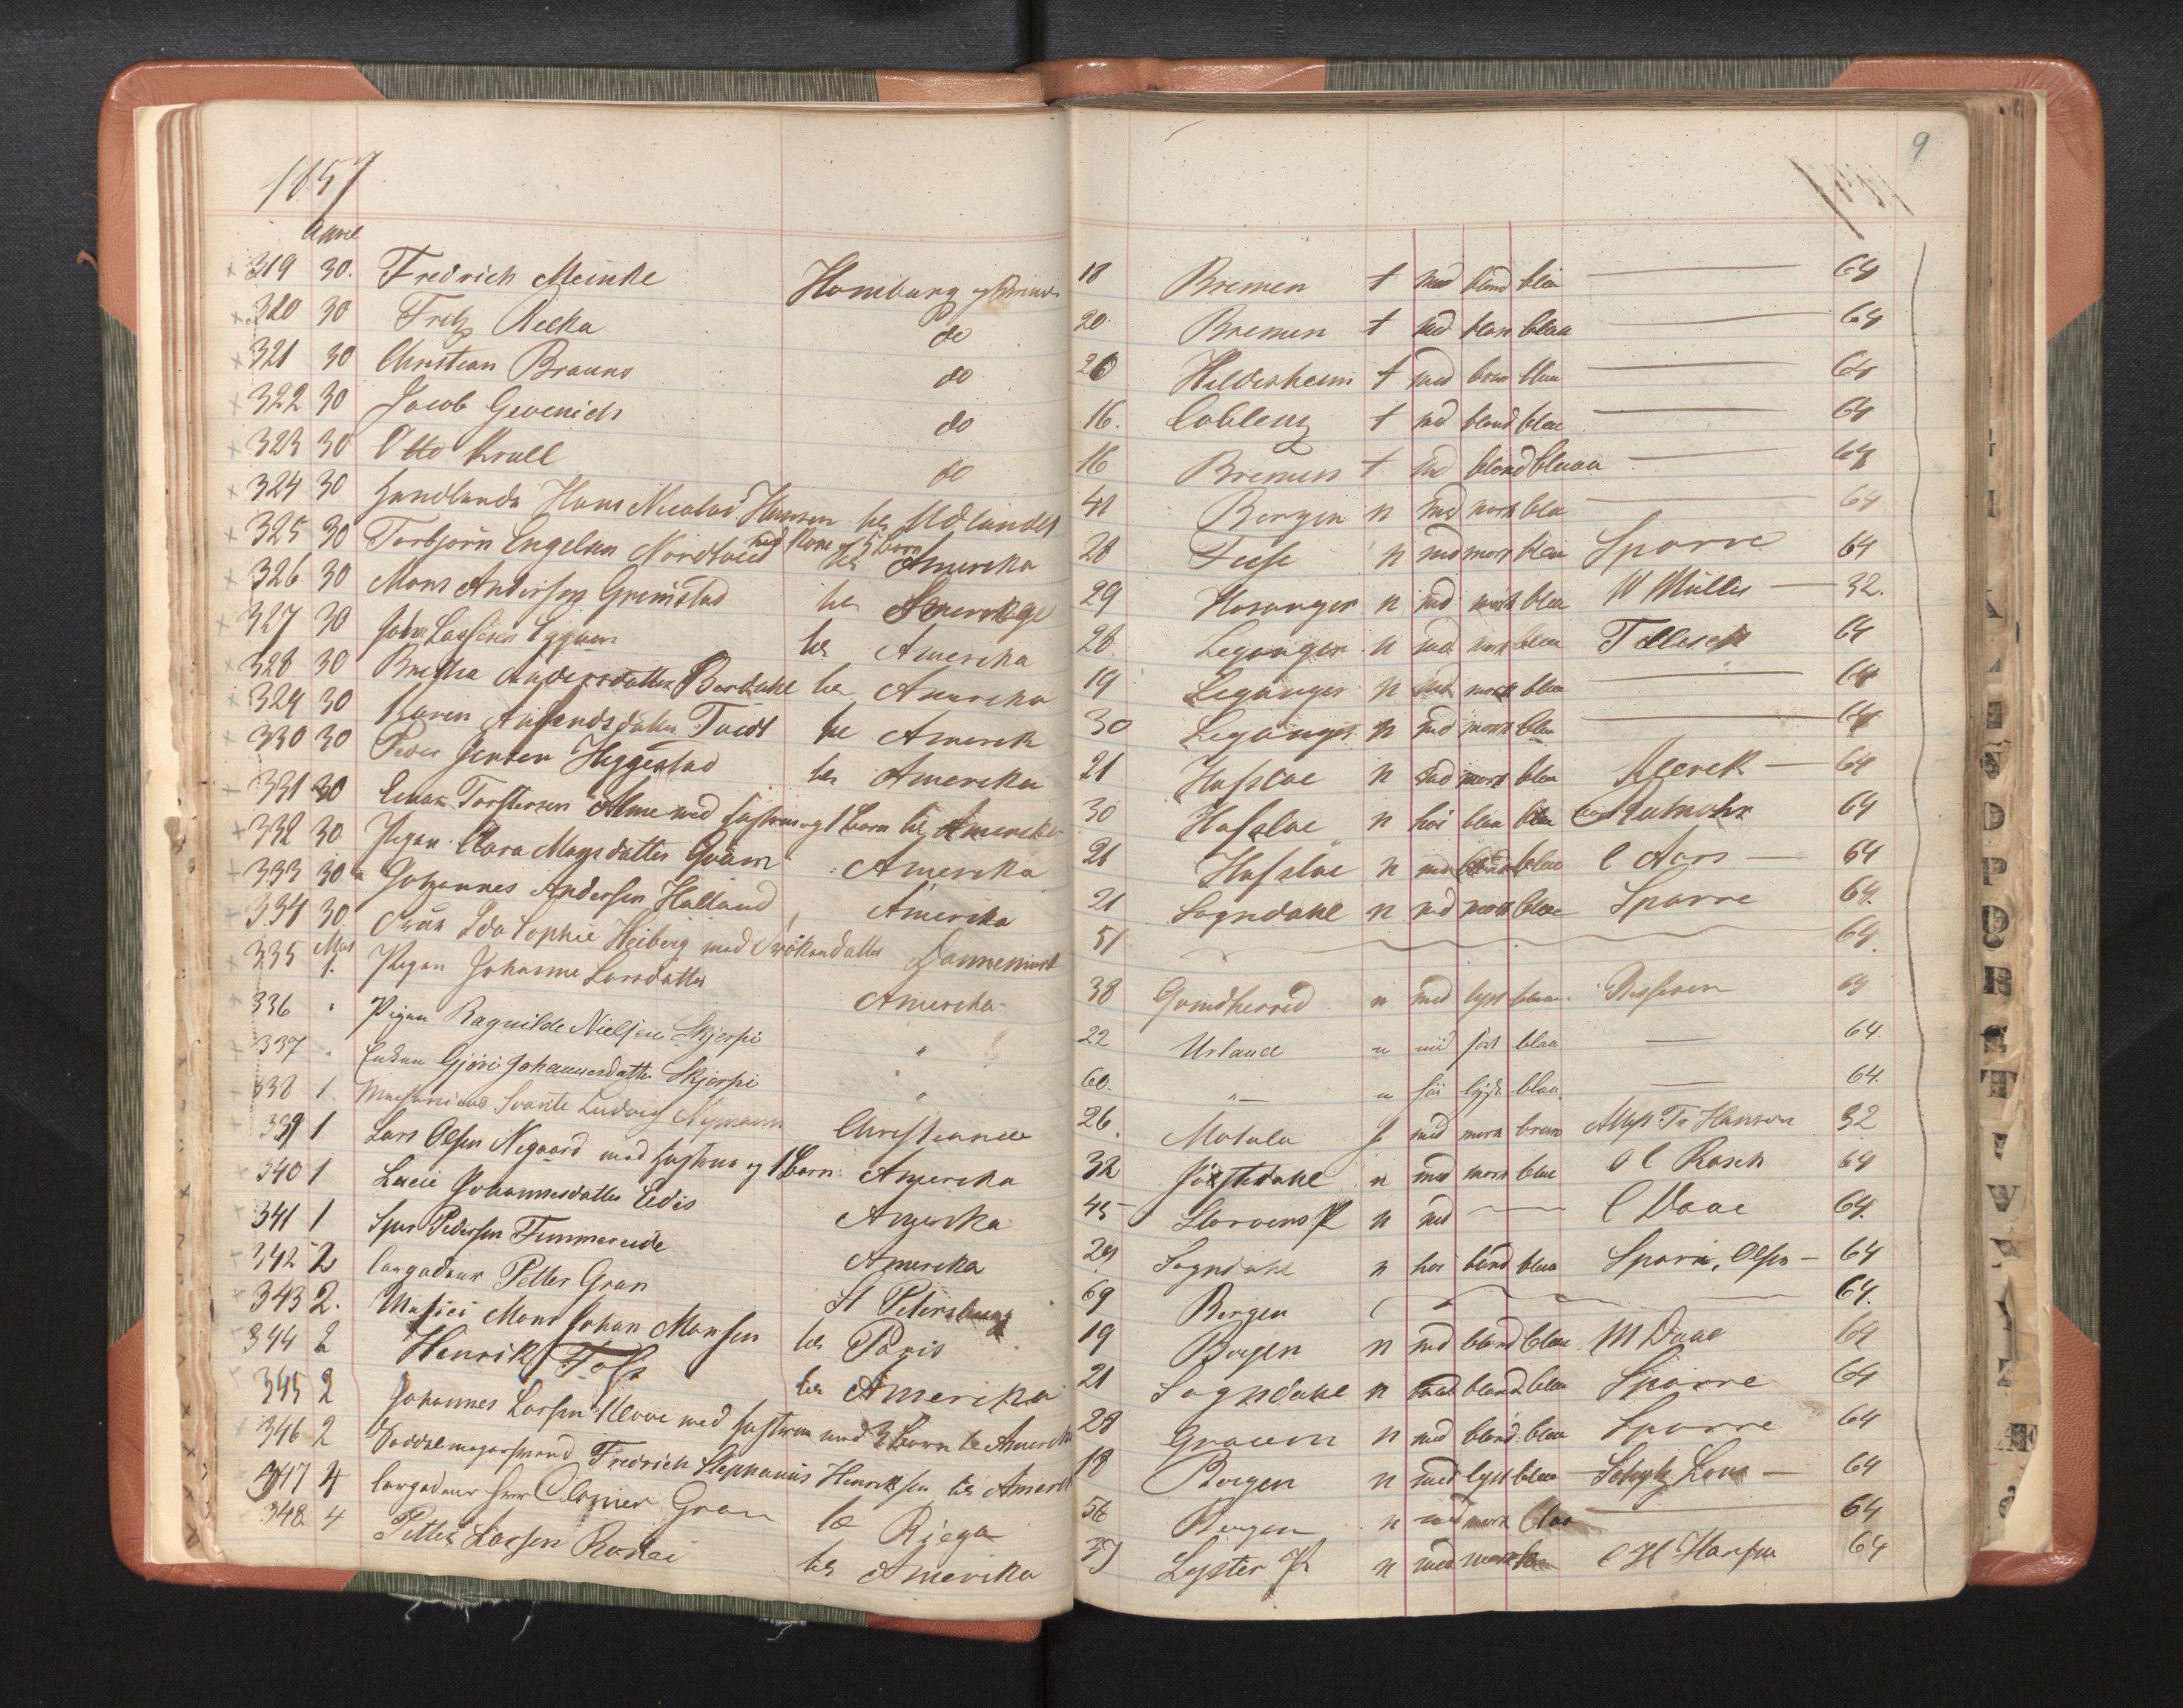 1857
9
April
319 30. Fredrich Meinke Hamburg og Bremen 18 Bremen t med blond blaa 64
320 30 Fritz Recka do 20 Bremen t med blaa 64
321 30 Christian Brauns do 26 Hildesheim t med brun blaa 64
322 30 Jacob Gevenich do 16. Coblenz t med blond blaa 64
323 30 Otto Krull do 16 Bremen t med blond blaaa 64
324 30 Handlende Hans Nicolai Hansen til Udlandet 41 Bergen n med mork blaa 64
325 30 Torbjörn Engelsen Nordtveid med Kone og 5 Born til Amerika 28 n med mork blaa Sparre 64
326 30 Mons Andersen Grimstad til Amerika 29 Hosanger n med mork blaa W Müller 32.
327 30 John Lassesen Eggum til Amerika 28. Leganger n med mork blaa 64
328 30 Bretha Andersdatter Berdahl til Amerika 19 Leganger n med mork blaa 64
329 30 Karen Tvedt til Amerik 30 Leganger n med mork blaa 64
330 30 Peder Jensen Heggestad til Amerika 21 Hafsloe n med mork blaa Klerck 64
331 30 Torstersen Alme med Hustrue og 1 Barn til Amerika 30 Hafsloe n höi blaa blaa 64
332 30 Pigen Clara Monsdatter Qvam Amerika 21 Hafsloe n med blond blaa C Aars 64
333 30 Johannes Andersen Halland Amerika 21 Sogndahl n med mork blaa Sparre 64.
334 30. Ida Sophie Heiberg med Frökendatter Dannemark 51 64.
Mai
335 1. Pigen Johanne Larsdatter Amerika 38 Qvindherred n med lyst blaa 64
336 " Pigen Ragnilde Nielsen Skjerpi " 22 Urland n med sort blaa 64.
337 " Enken Gjöri Johannesdatter Skjerpi " 60. " n höi lyst blaa 64.
338 1. Mechanicus Svante Ludvig Nymann Christiania 26. Motala med mork brun Hanson 32
339 1 Lars Olsen Negaard med Hustrue og 1 Barn Amerika 32 Jöstedahl n med mork blaa O C Rosch 64
340 1 Lucie Johannesdatter Eidis Amerika 45 n med C Daae 64.
341 1 Iver Pedersen Fimmereide Amerika 24 Sogndahl n höi blond blaa Sparre, Olsen 64
342 2 Cargadeur Petter Gran St Petersburg 69 Bergen 64.
343 2. Musici Mons Johan Monsen til Paris 19 Bergen n med blond blaa M Daae 64
344 2 Henrik Foss til Amerika 21 Sogndahl n med blond blaa Sparre 64
345 2 Johannes Larsen Klove med Hustrue med 3 Born til Amerika 28 Graven n med blond blaa Sparre 64
346 2 Saddelmagersvend Fredrich Stephanus Henriksen til Amerik 18 Bergen n med lyst blaa 64
347 4 Cargadeur Herr Gran til Riega 56 Bergen n med mork blaa 64
348. 4 Petter Larsen til Amerika 37 Lyster P n med mork C H Hansen 64